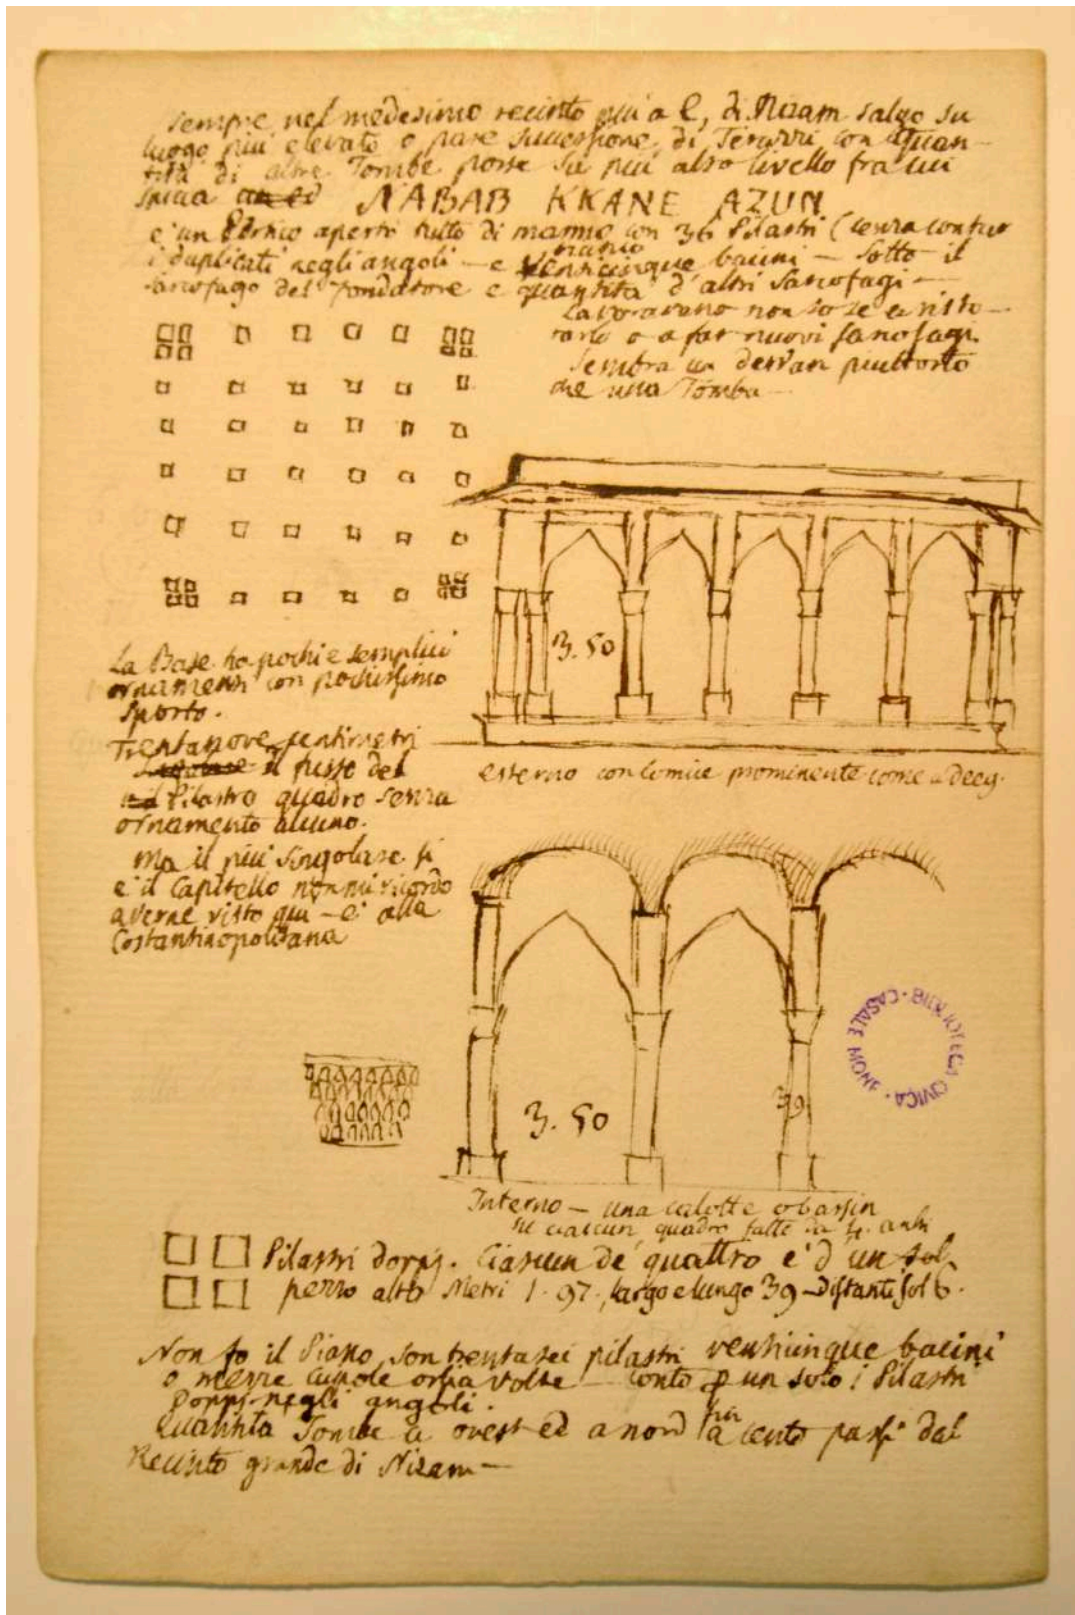 sempre nel medesimo recinto più a E, di Nizam salgo su
luogo più elevato o pare successione di Terazzi con Quan-
tità di altre Tombe posse su più alto livello fra cui
spicca
NABAB KKANE AZUN
e' un Portico aperto tutto di marmo con 36 Pilastri (senza contar
i duplicati negli angoli — e venticinque bacini — sotto il
sarcofago del fondatore e quantità d'altri Sarcofagi —
Lavoravano non so se a risto-
rarlo o a far nuovi sarcofagi.
Sembra un dervan piuttosto
che una Tomba —
3.50
La Base ha pochi e semplici
ornamenti con pochissimo
sporto.
Trentanove centimetri
il fusto del
Pilastro quadro senza
ornamento alcuno.
esterno con Cornice prominente come a Deeg.
Ma il più singolare si
e' il Capitello non mi ricordo
averne visto qui — e' alla
Costantinopolitana
3.50
39
BIBLIOTECA CIVICA · CASALE MONF.
Interno — una calotte o bassin
su ciascun quadro fatte da 4. archi
Pilastri doppj. Ciascun de' quattro e' d'un sol
pezzo alto Metri 1.97, largo e lungo 39 — distanti sol 6.
Non fo il Piano, son trentasei pilastri venticinque bacini
o mezze cupole orsia volte — conto p un solo i Pilastri
Doppi negli angoli.
Quantità Tombe a ovest ed a nord fin a cento passi dal
Recinto grande di Nizam —